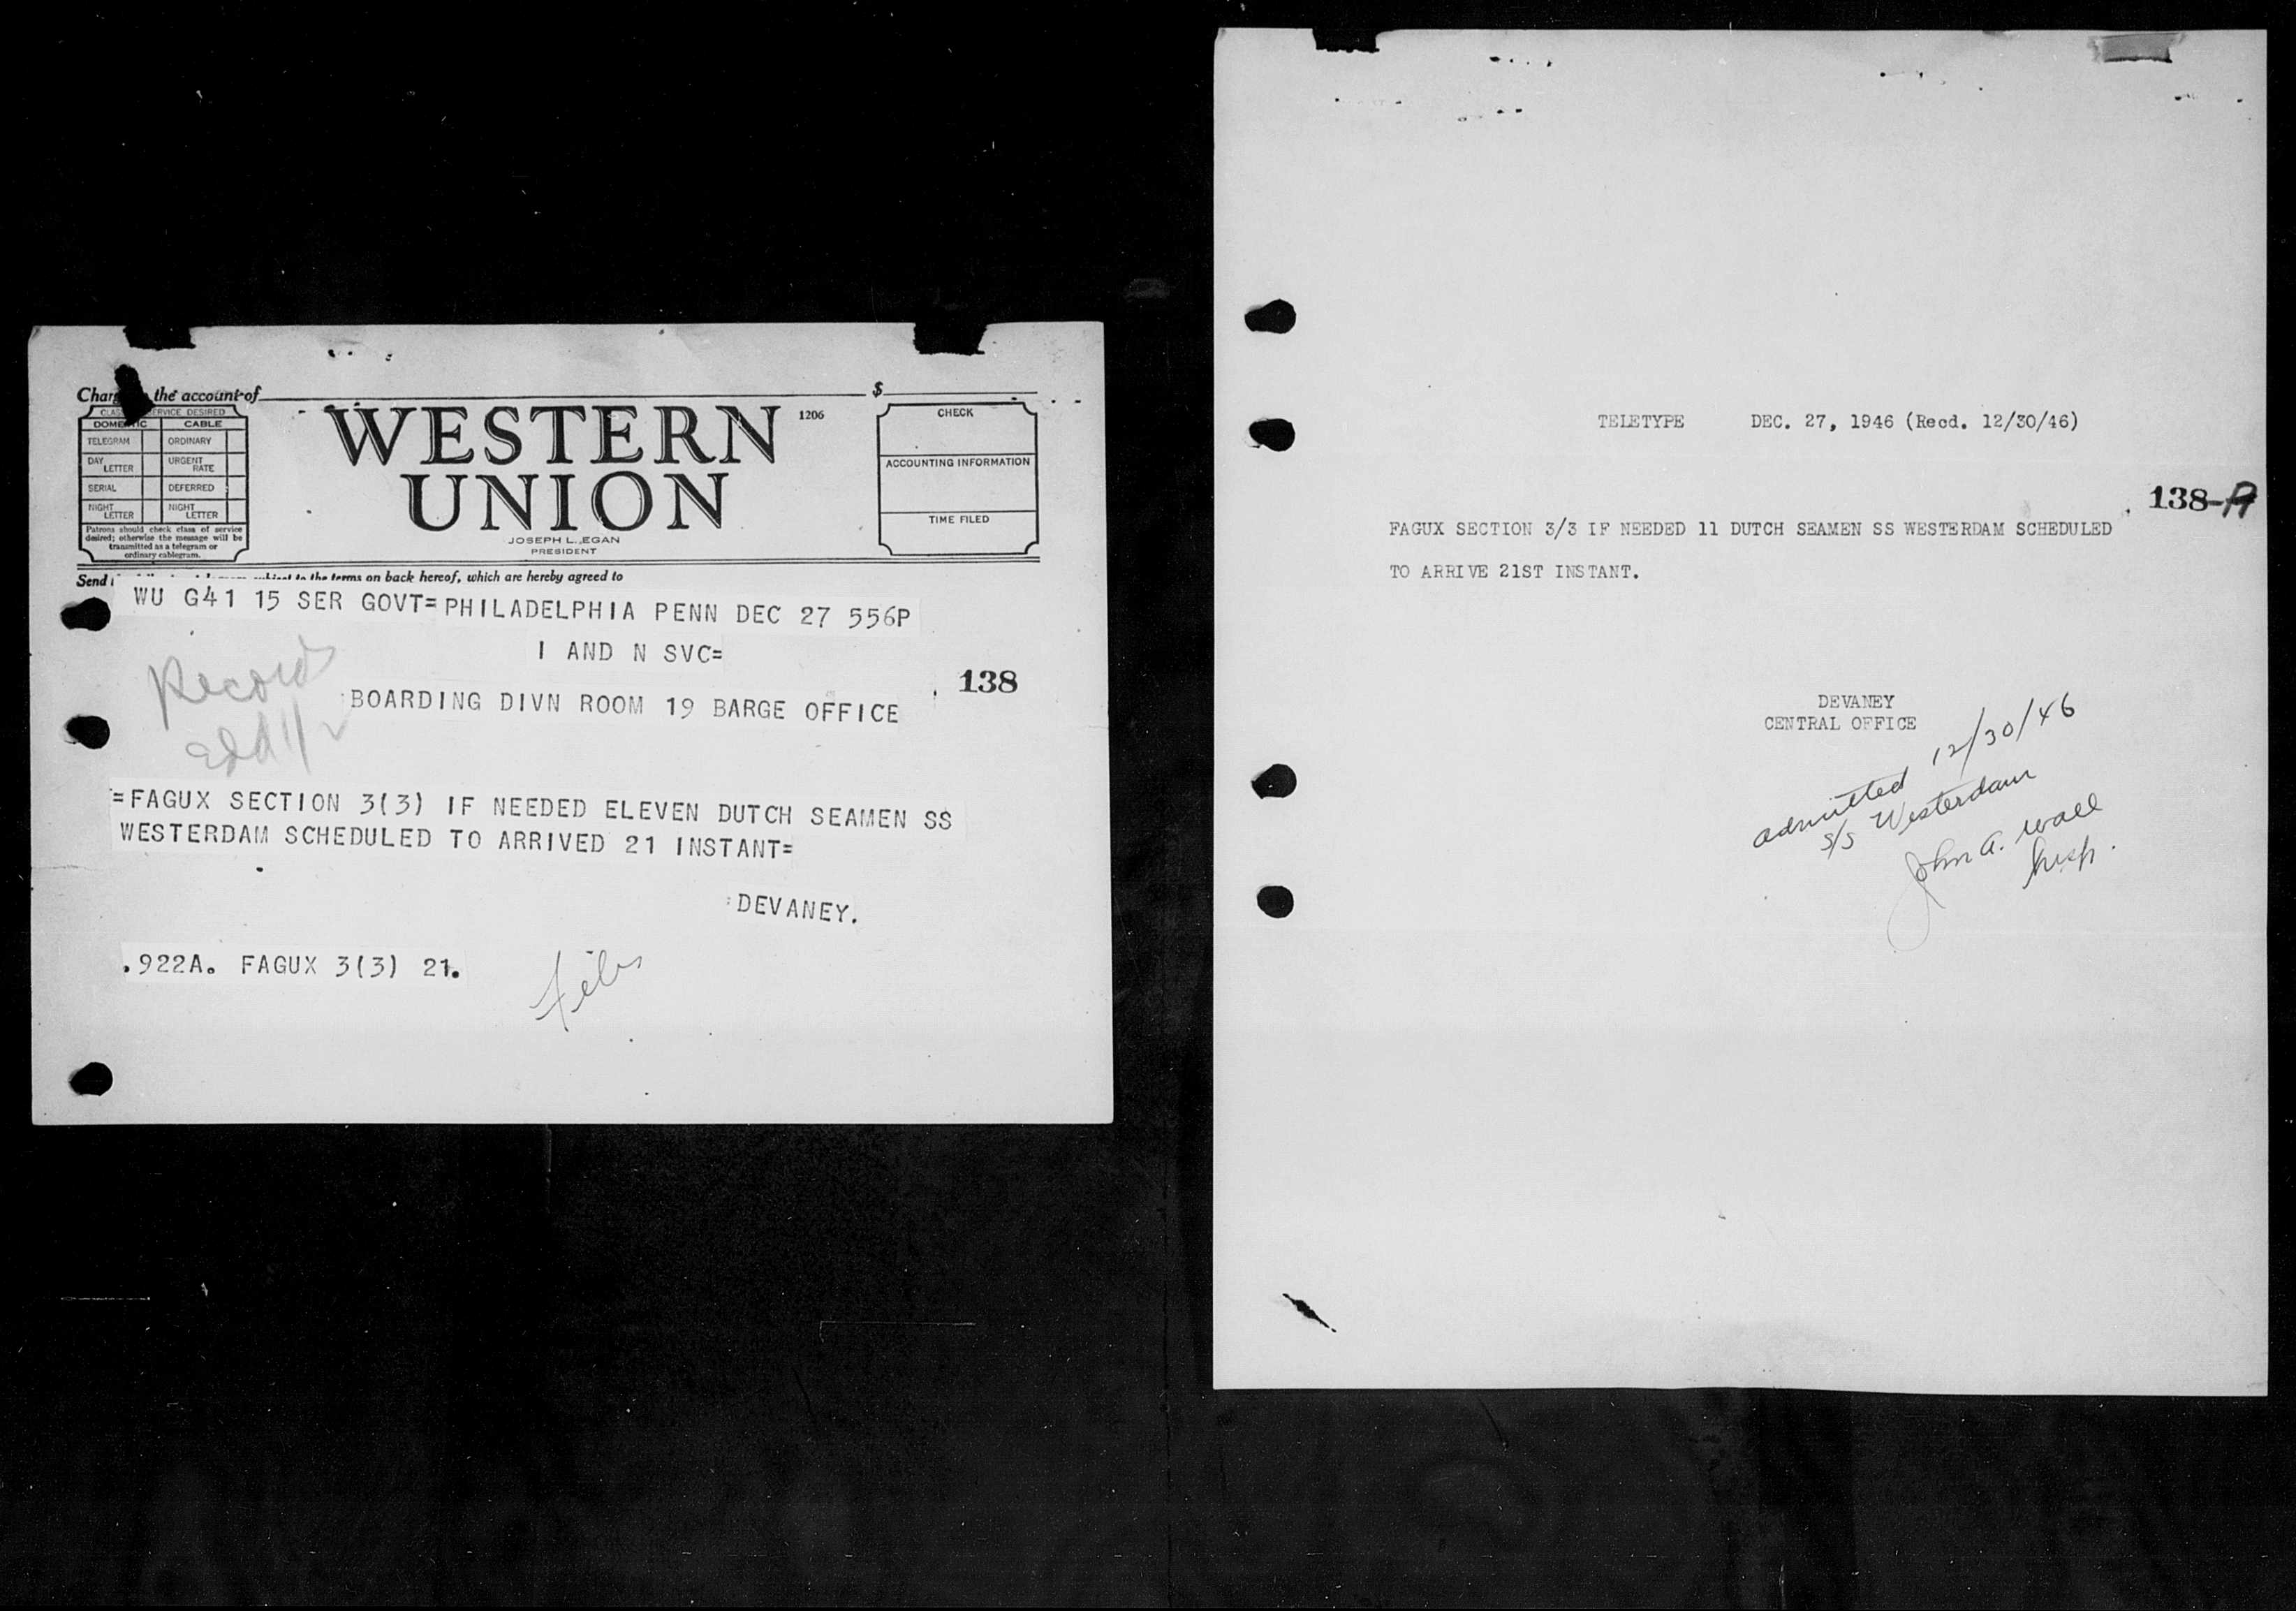 Charge to the account of $
CLASS OF SERVICE DESIRED
DOMESTIC CABLE
TELEGRAM ORDINARY
DAY LETTER URGENT RATE
SERIAL DEFERRED
NIGHT LETTER NIGHT LETTER
Patrons should check class of service
desired; otherwise the message will be
transmitted as a telegram or
ordinary cablegram.
WESTERN
UNION
1206
JOSEPH L. EGAN
PRESIDENT
CHECK
ACCOUNTING INFORMATION
TIME FILED
Send to the terms on back hereof, which are hereby agreed to
WU G41 15 SER GOVT=PHILADELPHIA PENN DEC 27 556P
I AND N SVC=
138
Record
BOARDING DIVN ROOM 19 BARGE OFFICE
=FAGUX SECTION 3(3) IF NEEDED ELEVEN DUTCH SEAMEN SS
WESTERDAM SCHEDULED TO ARRIVED 21 INSTANT=
:DEVANEY.
.922A. FAGUX 3(3) 21.
File
TELETYPE DEC. 27, 1946 (Recd. 12/30/46)
138-A
FAGUX SECTION 3/3 IF NEEDED 11 DUTCH SEAMEN SS WESTERDAM SCHEDULED
TO ARRIVE 21ST INSTANT.
DEVANEY
CENTRAL OFFICE
admitted 12/30/46
S/S Westerdam
John A. Wall
Insp.